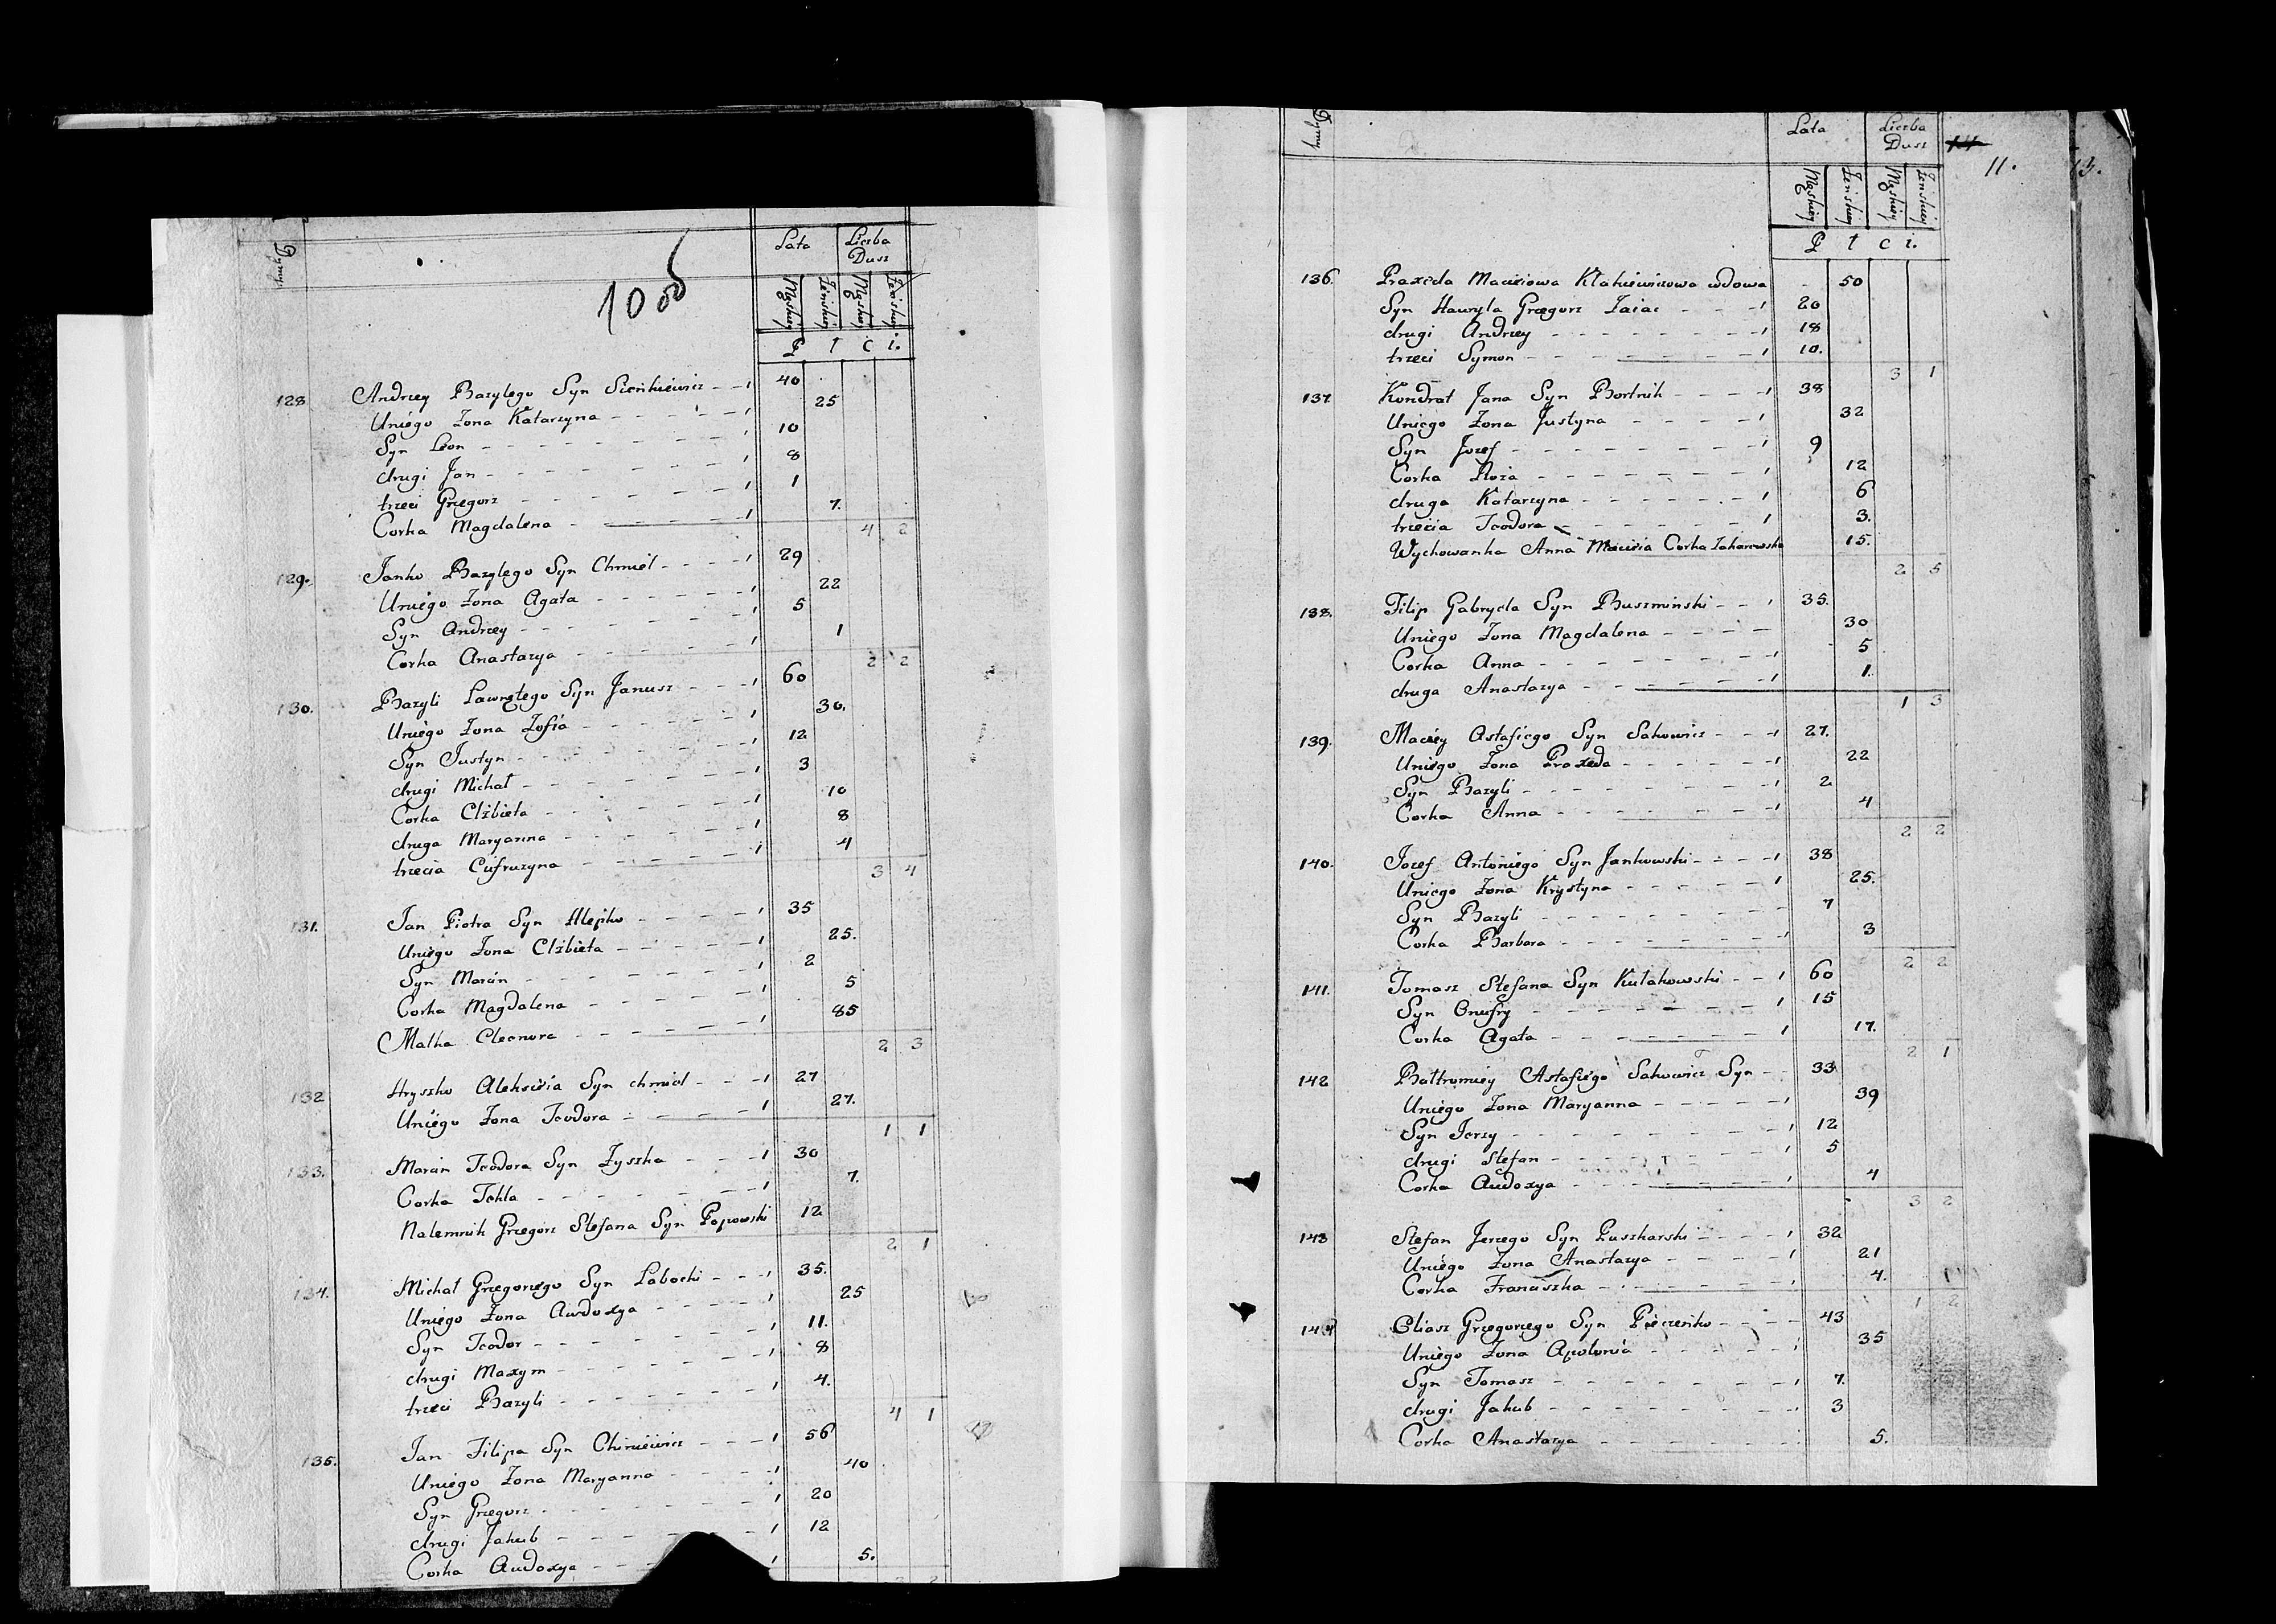 Dymy
Lata Liczba Dusz
Męskiey Żeńskiey Męskiey Żeńskiey
P t c i.
100
128 Andrzey Bazylego Syn Sieńkiewicz - - 1 40
Uniego Żona Katarzyna - - - 1 25
Syn Leon - - - 1 10
drugi Jan - - - 1 8
trzeci Grzegorz - - - 1 1
Corka Magdalena - - - 1 7.
4 2
129. Janko Bazylego Syn Chmiel - - - 1 29
Uniego Żona Agata - - - 1 22
Syn Andrzey - - - 1 5
Corka Anastazya - - - 1 1
2 2
130. Bazyli Ławrętego Syn Janusz - - - 1 60
Uniego Żona Zofia - - - 1 30.
Syn Justyn - - - 1 12
drugi Michał - - - 1 3
Corka Elżbieta - - - 1 10
druga Maryanna - - - 1 8
trzecia Eufruzyna - - - 1 4
3 4
131. Jan Piotra Syn Hlepko - - - 1 35
Uniego Żona Elżbieta - - - 1 25.
Syn Marcin - - - 1 2
Corka Magdalena - - - 1 5
Matka Eleonora - - - 1 85
2 3
132 Hryszko Aleksieia Syn chmiel - - - 1 27
Uniego Żona Teodora - - - 1 27.
1 1
133. Marcin Teodora Syn Zyszka - - - 1 30
Corka Tekla - - - 1 7.
Nalemnik Grzegorz Stefana Syn Popowski 12
2 1
134. Michał Grzegorzego Syn Labocki - - - 1 35.
Uniego Żona Awdoxya - - - 1 25
Syn Teodor - - - 1 11.
drugi Maxym - - - 1 8
trzeci Bazyli - - - 1 4.
4 1
135. Jan Filipa Syn - - - 1 56
Uniego Żona Maryanna - - - 1 40
Syn Grzegorz - - - 1 20
drugi Jakub - - - 1 12
Corka Audoxya - - 1 5.
Dymy
Lata Liczba Dusz
14 11. 13.
Męskiey Żeńskiey Męskiey Żeńskiey
P t c i.
136. Praxeda Macieiowa Klakiewiczowa wdowa - 50
Syn Hawryla Grzegorz Zaiac - - - 1 20
drugi Andrzey - - - 1 18
trzeci Symon - - - 1 10.
3 1
137. Kondrat Jana Syn Bortnik - - - 1 38
Uniego Żona Justyna - - - 1 32
Syn Jozef - - - 1 9
Corka Roża - - - 1 12
druga Katarzyna - - - 1 6
trzecia Teodora - - - 1 3.
Wychowanka Anna Macieia Corka Zakarewska 15.
2 5
138. Filip Gabryela Syn Buszminski - - 1 35.
Uniego Żona Magdalena - - - 30
Corka Anna - - - 1 5
druga Anastazya - - - 1 1.
1 3
139. Maciey Astafiego Syn Sakowicz - - - 1 27.
Uniego Żona Praxeda - - - 1 22
Syn Bazyli - - - 1 2
Corka Anna - - - 1 4
2 2
140. Jozef Antoniego Syn Jankowski - - - 1 38
Uniego Żona Krystyna - - - 1 25.
Syn Bazyli - - - 7
Corka Barbara - - - 1 3
2 2
141. Tomasz Stefana Syn Kułakowski - - 1 60
Syn Onufry - - - 1 15
Corka Agata - - - 1 17.
2 1
142 Bałtromiey Astafiego Sakowicz Syn - - 33
Uniego Żona Maryanna - - - 1 39
Syn Jerzy - - - 1 12
drugi Stefan - - - 1 5
Corka Audoxya - - - 1 4
3 2
143 Stefan Jerzego Syn Puszkarski - - - 1 32
Uniego Żona Anastazya - - - 1 21
Corka Franuszka - - - 1 4.
1 2
144 Eliasz Grzegorzego Syn Pieczeńko - - - 43
Uniego Żona Apolonia - - - 1 35
Syn Tomasz - - - 1 7.
drugi Jakub - - - 1 3
Corka Anastazya - - - 5.